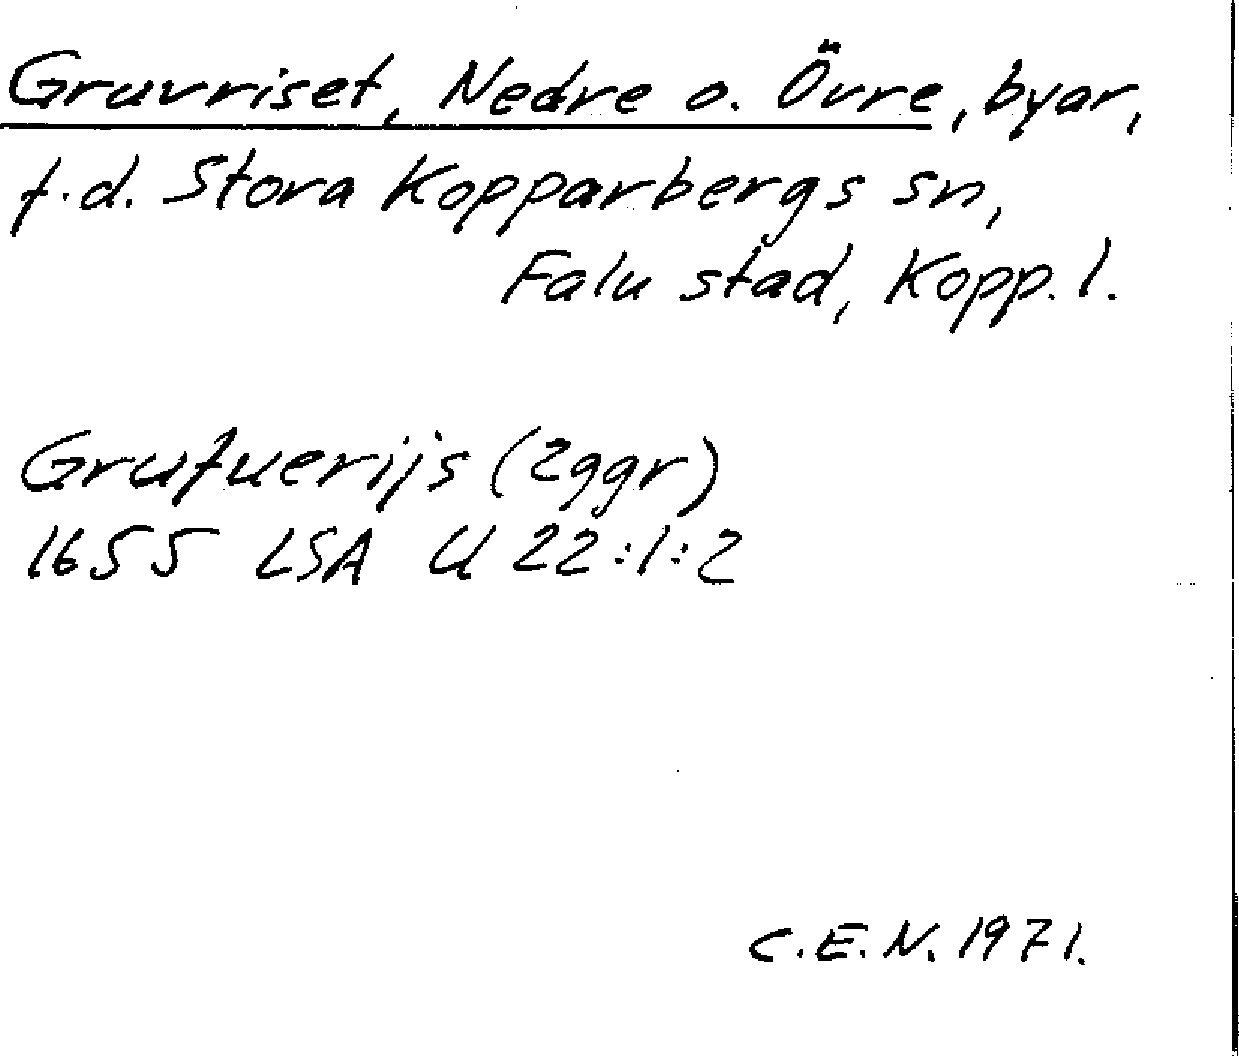 Gruvriset, Nedre o. Övre, byar,
f.d. Stora Kopparbergs sn,
Falu stad, Kopp. l.
Grufuerijs (2ggr)
1655 LSA U 22:1:2
C.E.N. 1971.